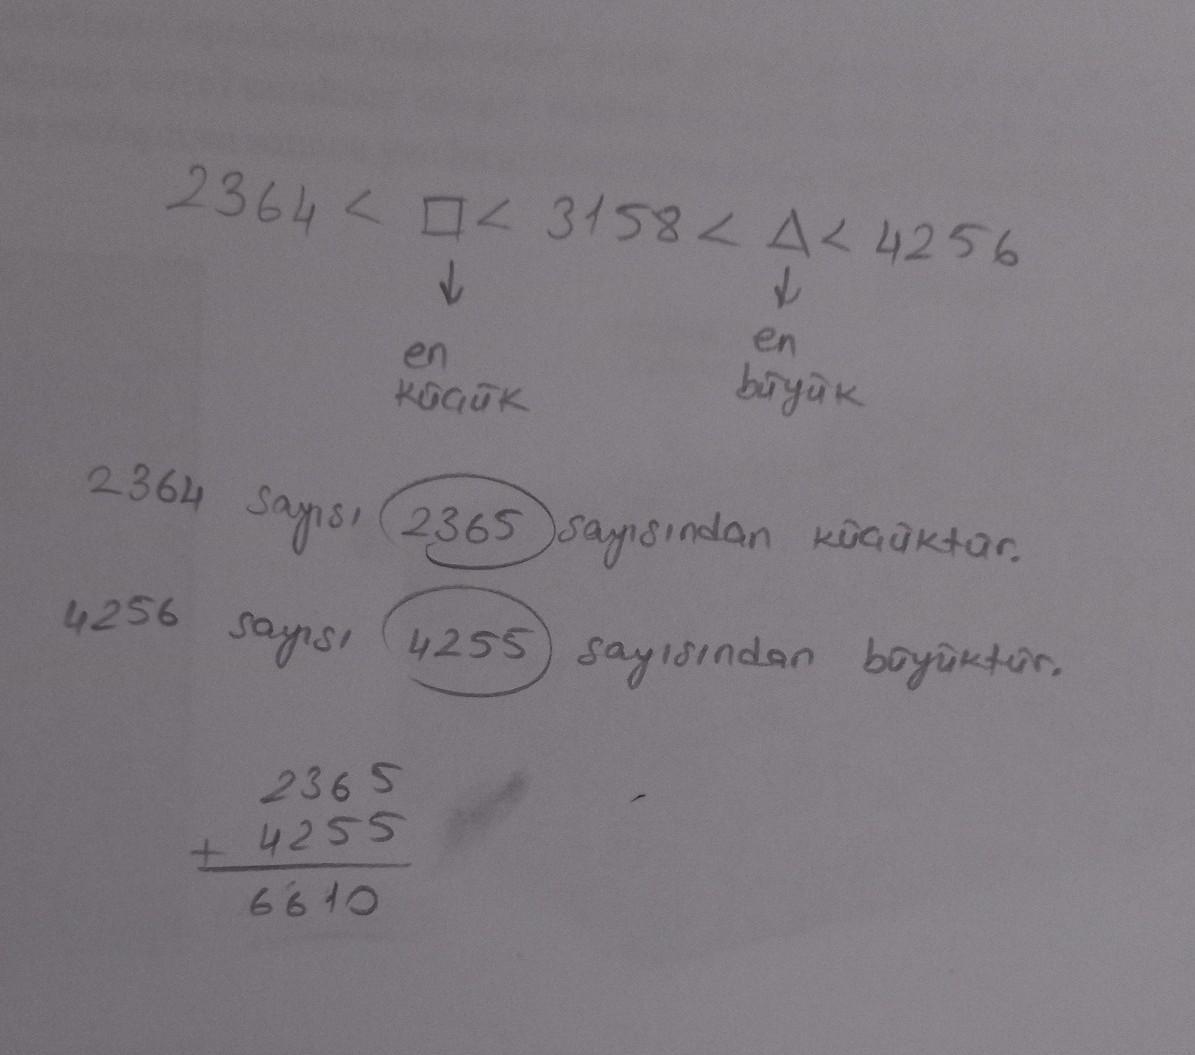 2364 < □ < 3158 < △ < 4256
↓ ↓
en en
küçük büyük
2364 sayısı 2365 sayısından küçüktür.
4256 sayısı 4255 sayısından büyüktür.
2365
+ 4255
6610